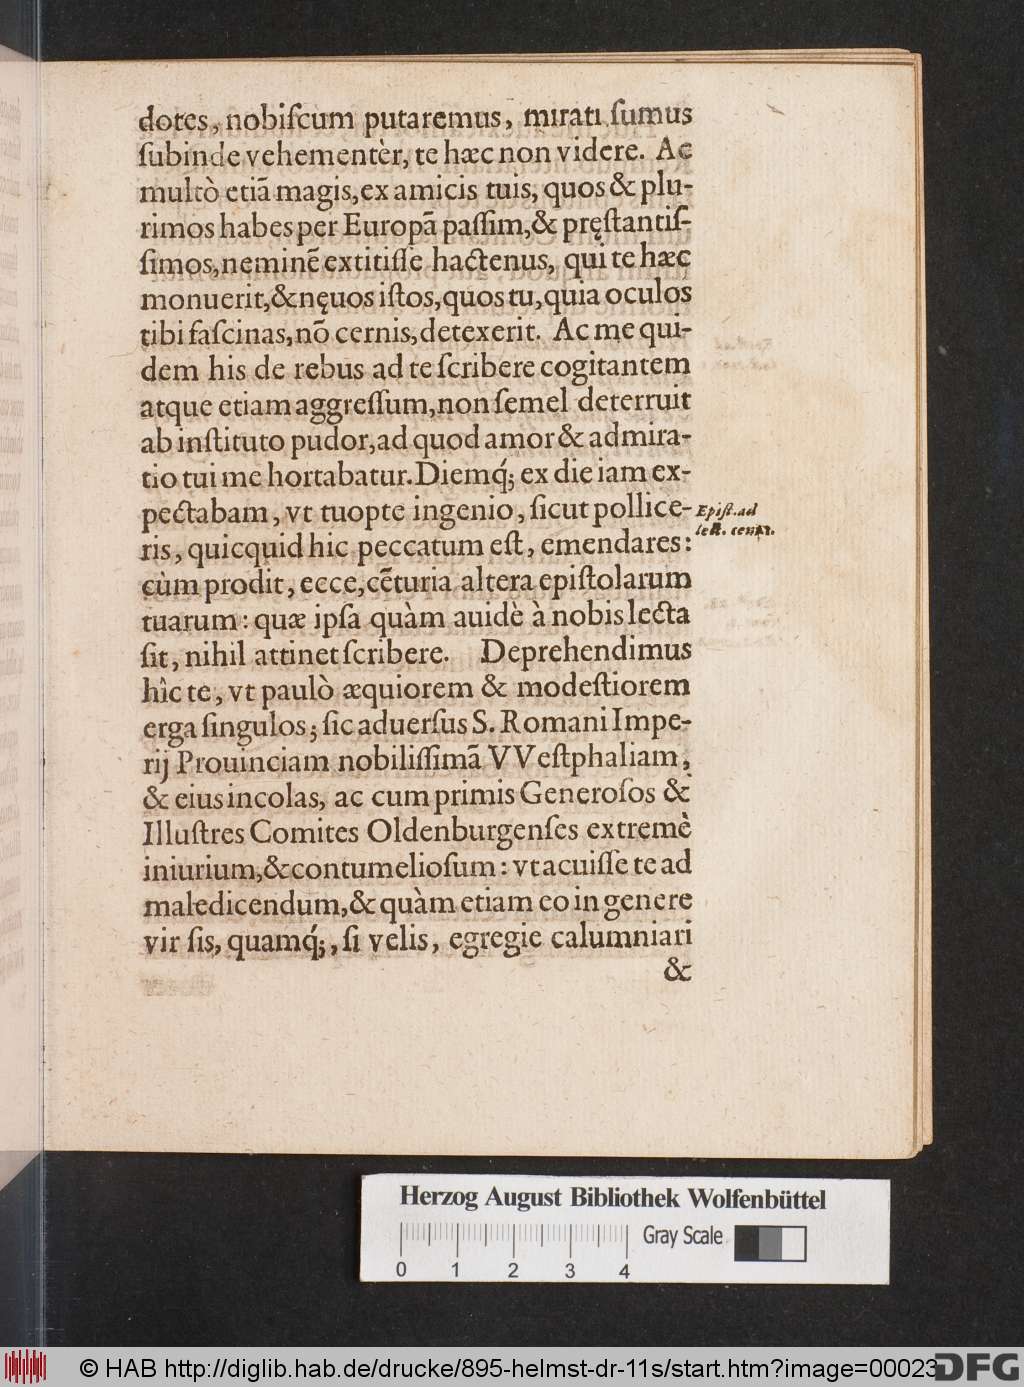 dotes, nobiſcum putaremus, mirati ſumus
ſubinde vehementèr, te hæc non videre. Ac
multò etiã magis, ex amicis tuis, quos & plu-
rimos habes per Europã paſſim, & pręſtantiſ-
ſimos, neminẽ extitiſſe hactenus, qui te hæc
monuerit, & nęuos iſtos, quos tu, quia oculos
tibi faſcinas, nõ cernis, detexerit. Ac me qui-
dem his de rebus ad te ſcribere cogitantem
atque etiam aggreſſum, non ſemel deterruit
ab inſtituto pudor, ad quod amor & admira-
tio tui me hortabatur. Diemq́; ex die iam ex-
pectabam, vt tuopte ingenio, ſicut pollice-
Epiſt. ad
lect. centur.
ris, quicquid hic peccatum eſt, emendares:
cùm prodit, ecce, cẽturia altera epiſtolarum
tuarum: quæ ipſa quàm auidè à nobis lecta
ſit, nihil attinet ſcribere. Deprehendimus
hìc te, vt paulò æquiorem & modeſtiorem
erga ſingulos; ſic aduerſus S. Romani Impe-
rij Prouinciam nobiliſſimã VVeſtphaliam,
& eius incolas, ac cum primis Generoſos &
Illuſtres Comites Oldenburgenſes extremè
iniurium, & contumelioſum: vt acuiſſe te ad
maledicendum, & quàm etiam eo in genere
vir ſis, quamq́;, ſi velis, egregie calumniari
&
Herzog August Bibliothek Wolfenbüttel
Gray Scale
0 1 2 3 4
© HAB http://diglib.hab.de/drucke/895-helmst-dr-11s/start.htm?image=00023
DFG